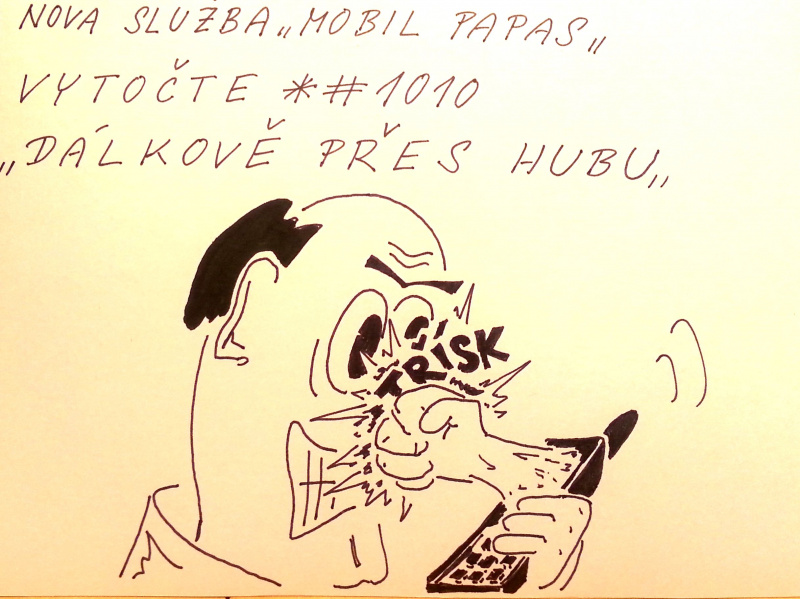 NOVA SLUŽBA „MOBIL PAPAS„
VYTOČTE *#1010
„DÁLKOVĚ PŘES HUBU„
TRÍSK